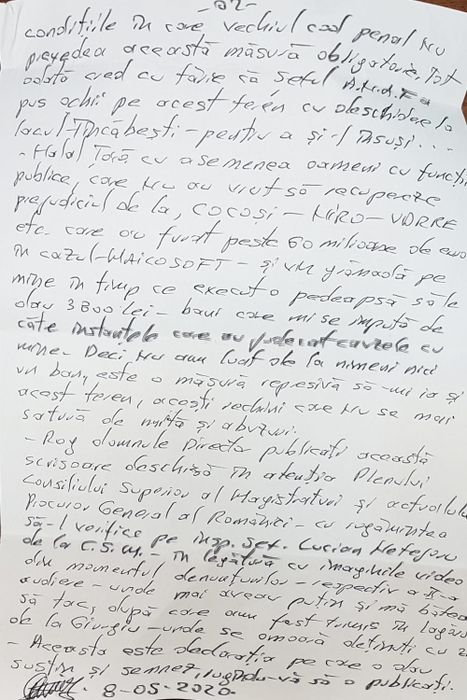 -02-
condițiile în care vechiul cod penal nu
prevedea această măsură obligatorie. Tot
odată cred cu tărie că șeful A.N.A.F. a
pus ochii pe acest teren cu deschidere la
lacul Tîncăbești - pentru a și-l însuși...
- Halal Țară cu asemenea oameni cu funcții
publice, care nu au vrut să recupereze
prejudiciul de la, COCOȘI - MIRO - VORRE
etc. care au furat peste 60 milioane de euro
în cazul - MAICOSOFT - și vin grămadă pe
mine în timp ce execut o pedeapsă să le
dau 3800 lei - bani care mi se impută de
către instanțele care au judecat cauzele cu
mine. Deci nu am luat de la nimeni nici
un ban, este o măsură represivă să-mi ia și
acest teren, acești rechini care nu se mai
satură de mită și abuzuri.
- Rog domnule Director publicați această
scrisoare deschisă în atenția Plenului
Consiliului Superior al Magistraturi și actualului
Procuror General al României - cu rugămintea
să-l verifice pe insp. șef. Lucian Netejoru
de la C.S.M. - în legătură cu imaginile video
din momentul denunțurilor - respectiv a II-a
audiere - unde mai aveau puțin și mă bătea
să tac, după care am fost trimis în lagărul
de la Giurgiu - unde se omoară deținuți cu
- Aceasta este declarația pe care o dau
susțin și semnez, rugîndu-vă să o publicați.
8-05-2020.